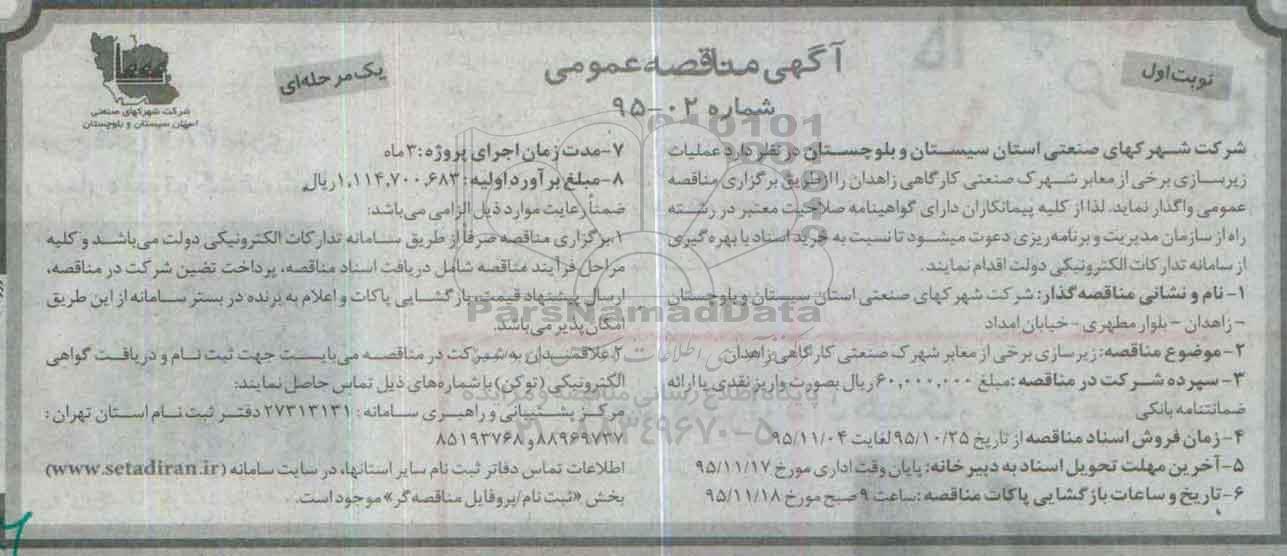 نوبت اول
آگهی مناقصه عمومی
یک مرحله‌ای
شماره ۰۲-۹۵
شرکت شهرکهای صنعتی
استان سیستان و بلوچستان
شرکت شهرکهای صنعتی استان سیستان و بلوچستان در نظر دارد عملیات
زیرسازی برخی از معابر شهرک صنعتی کارگاهی زاهدان را از طریق برگزاری مناقصه
عمومی واگذار نماید. لذا از کلیه پیمانکاران دارای گواهینامه صلاحیت معتبر در رشته
راه از سازمان مدیریت و برنامه‌ریزی دعوت میشود تا نسبت به خرید اسناد با بهره‌گیری
از سامانه تدارکات الکترونیکی دولت اقدام نمایند.
۱- نام و نشانی مناقصه‌گذار: شرکت شهرکهای صنعتی استان سیستان و بلوچستان
- زاهدان - بلوار مطهری - خیابان امداد
۲- موضوع مناقصه: زیرسازی برخی از معابر شهرک صنعتی کارگاهی زاهدان
۳- سپرده شرکت در مناقصه: مبلغ ۶۰,۰۰۰,۰۰۰ ریال بصورت واریز نقدی یا ارائه
ضمانتنامه بانکی
۴- زمان فروش اسناد مناقصه از تاریخ ۹۵/۱۰/۲۵ لغایت ۹۵/۱۱/۰۴
۵- آخرین مهلت تحویل اسناد به دبیرخانه: پایان وقت اداری مورخ ۹۵/۱۱/۱۷
۶- تاریخ و ساعات بازگشایی پاکات مناقصه: ساعت ۹ صبح مورخ ۹۵/۱۱/۱۸
۷- مدت زمان اجرای پروژه: ۳ ماه
۸- مبلغ برآورد اولیه: ۱,۱۱۴,۷۰۰,۶۸۳ ریال
ضمناً رعایت موارد ذیل الزامی می‌باشد:
۱. برگزاری مناقصه صرفاً از طریق سامانه تدارکات الکترونیکی دولت می‌باشد و کلیه
مراحل فرآیند مناقصه شامل دریافت اسناد مناقصه، پرداخت تضین شرکت در مناقصه،
ارسال پیشنهاد قیمت، بازگشایی پاکات و اعلام به برنده در بستر سامانه از این طریق
امکان‌پذیر می‌باشد.
۲. علاقمندان به شرکت در مناقصه می‌بایست جهت ثبت نام و دریافت گواهی
الکترونیکی (توکن) با شماره‌های ذیل تماس حاصل نمایند:
مرکز پشتیبانی و راهبری سامانه: ۲۷۳۱۳۱۳۱ دفتر ثبت نام استان تهران:
۸۸۹۶۹۷۳۷ و ۸۵۱۹۳۷۶۸
اطلاعات تماس دفاتر ثبت نام سایر استانها، در سایت سامانه (www.setadiran.ir)
بخش «ثبت نام/پروفایل مناقصه‌گر» موجود است.
ParsNamadData
پایگاه اطلاع رسانی مناقصه و مزایده
۰۲۱-۸۸۳۴۹۶۷۰-۵